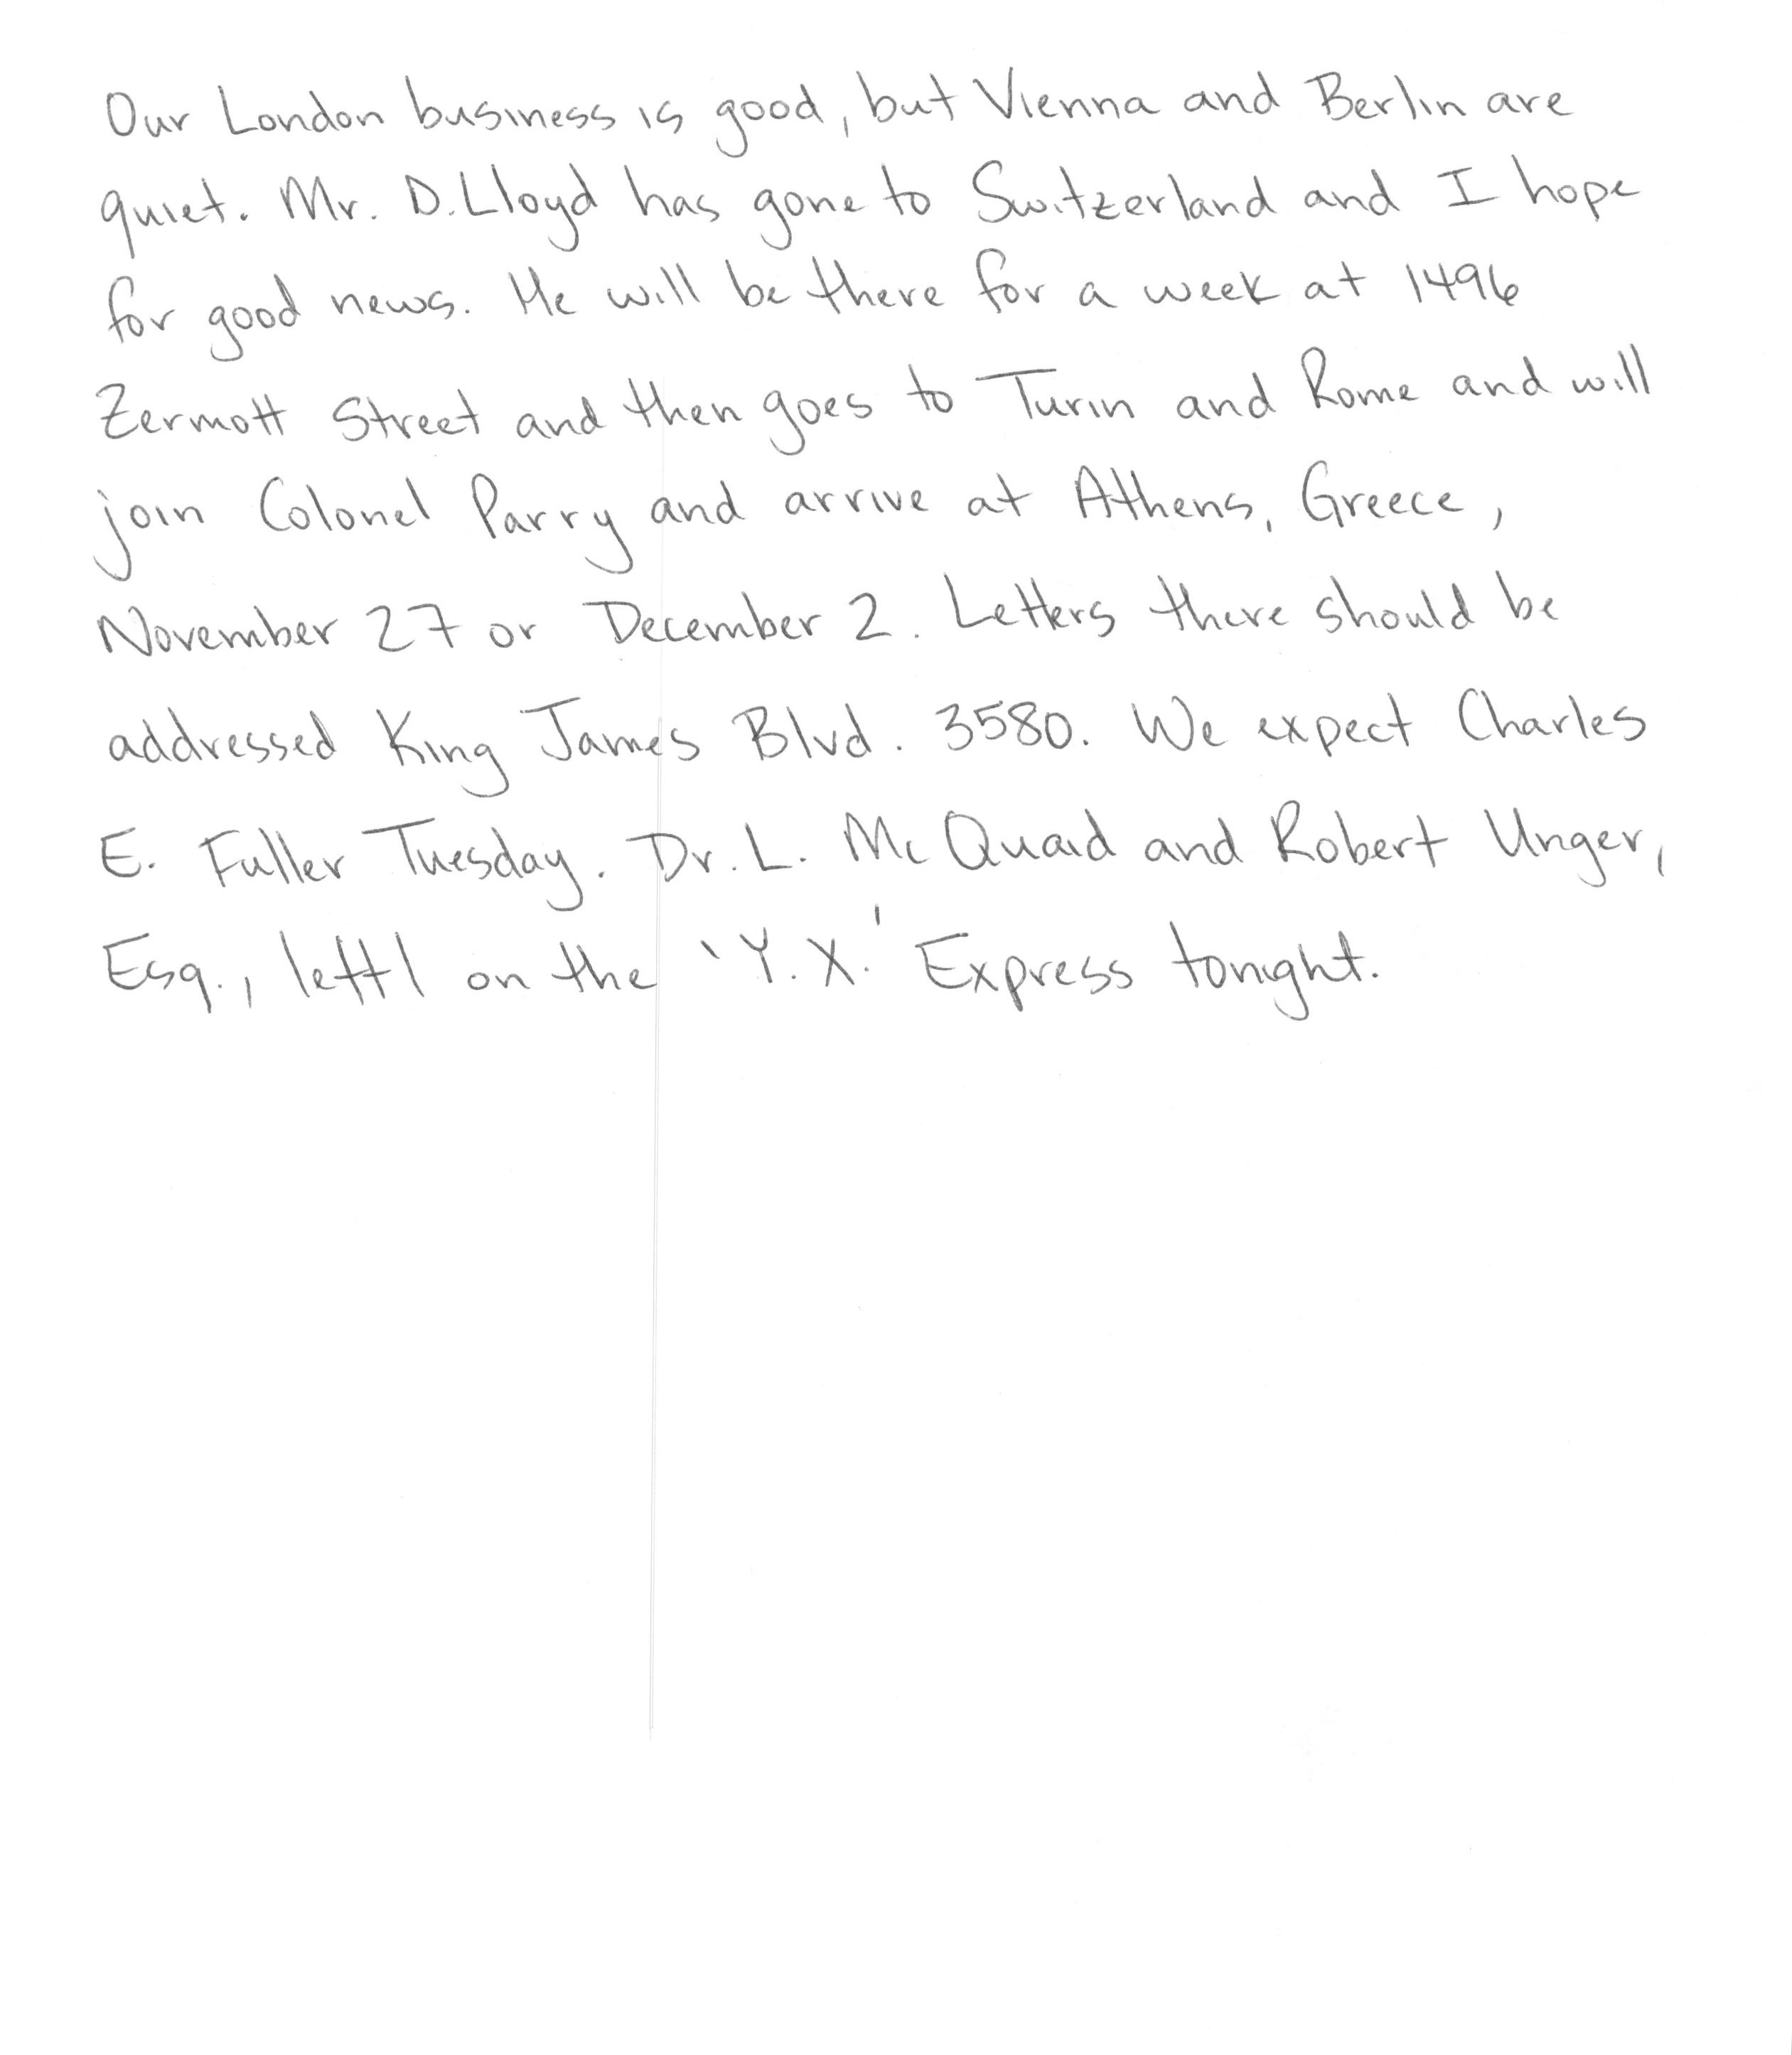 Our London business is good, but Vienna and Berlin are
quiet. Mr. D. Lloyd has gone to Switzerland and I hope
for good news. He will be there for a week at 1496
Zermott Street and then goes to Turin and Rome and will
join Colonel Parry and arrive at Athens, Greece,
November 27 or December 2. Letters there should be
addressed King James Blvd. 3580. We expect Charles
E. Fuller Tuesday. Dr. L. McQuaid and Robert Unger,
Esq., left on the 'Y.X.' Express tonight.